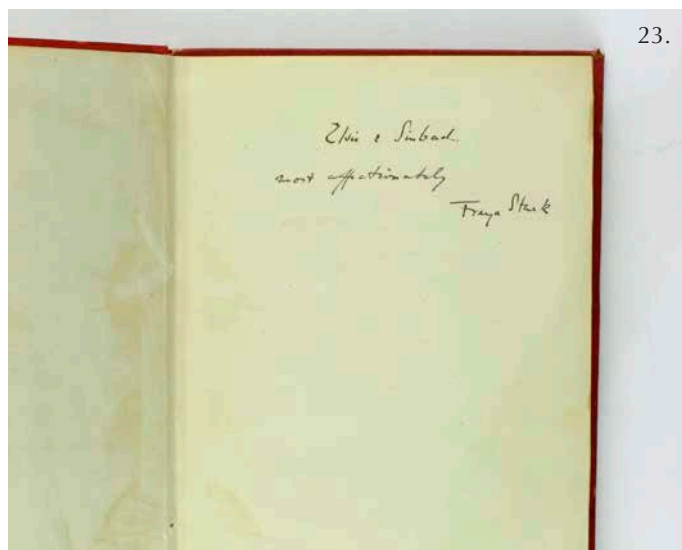 23.
& Sinbad.
most affectionately
Freya Stark